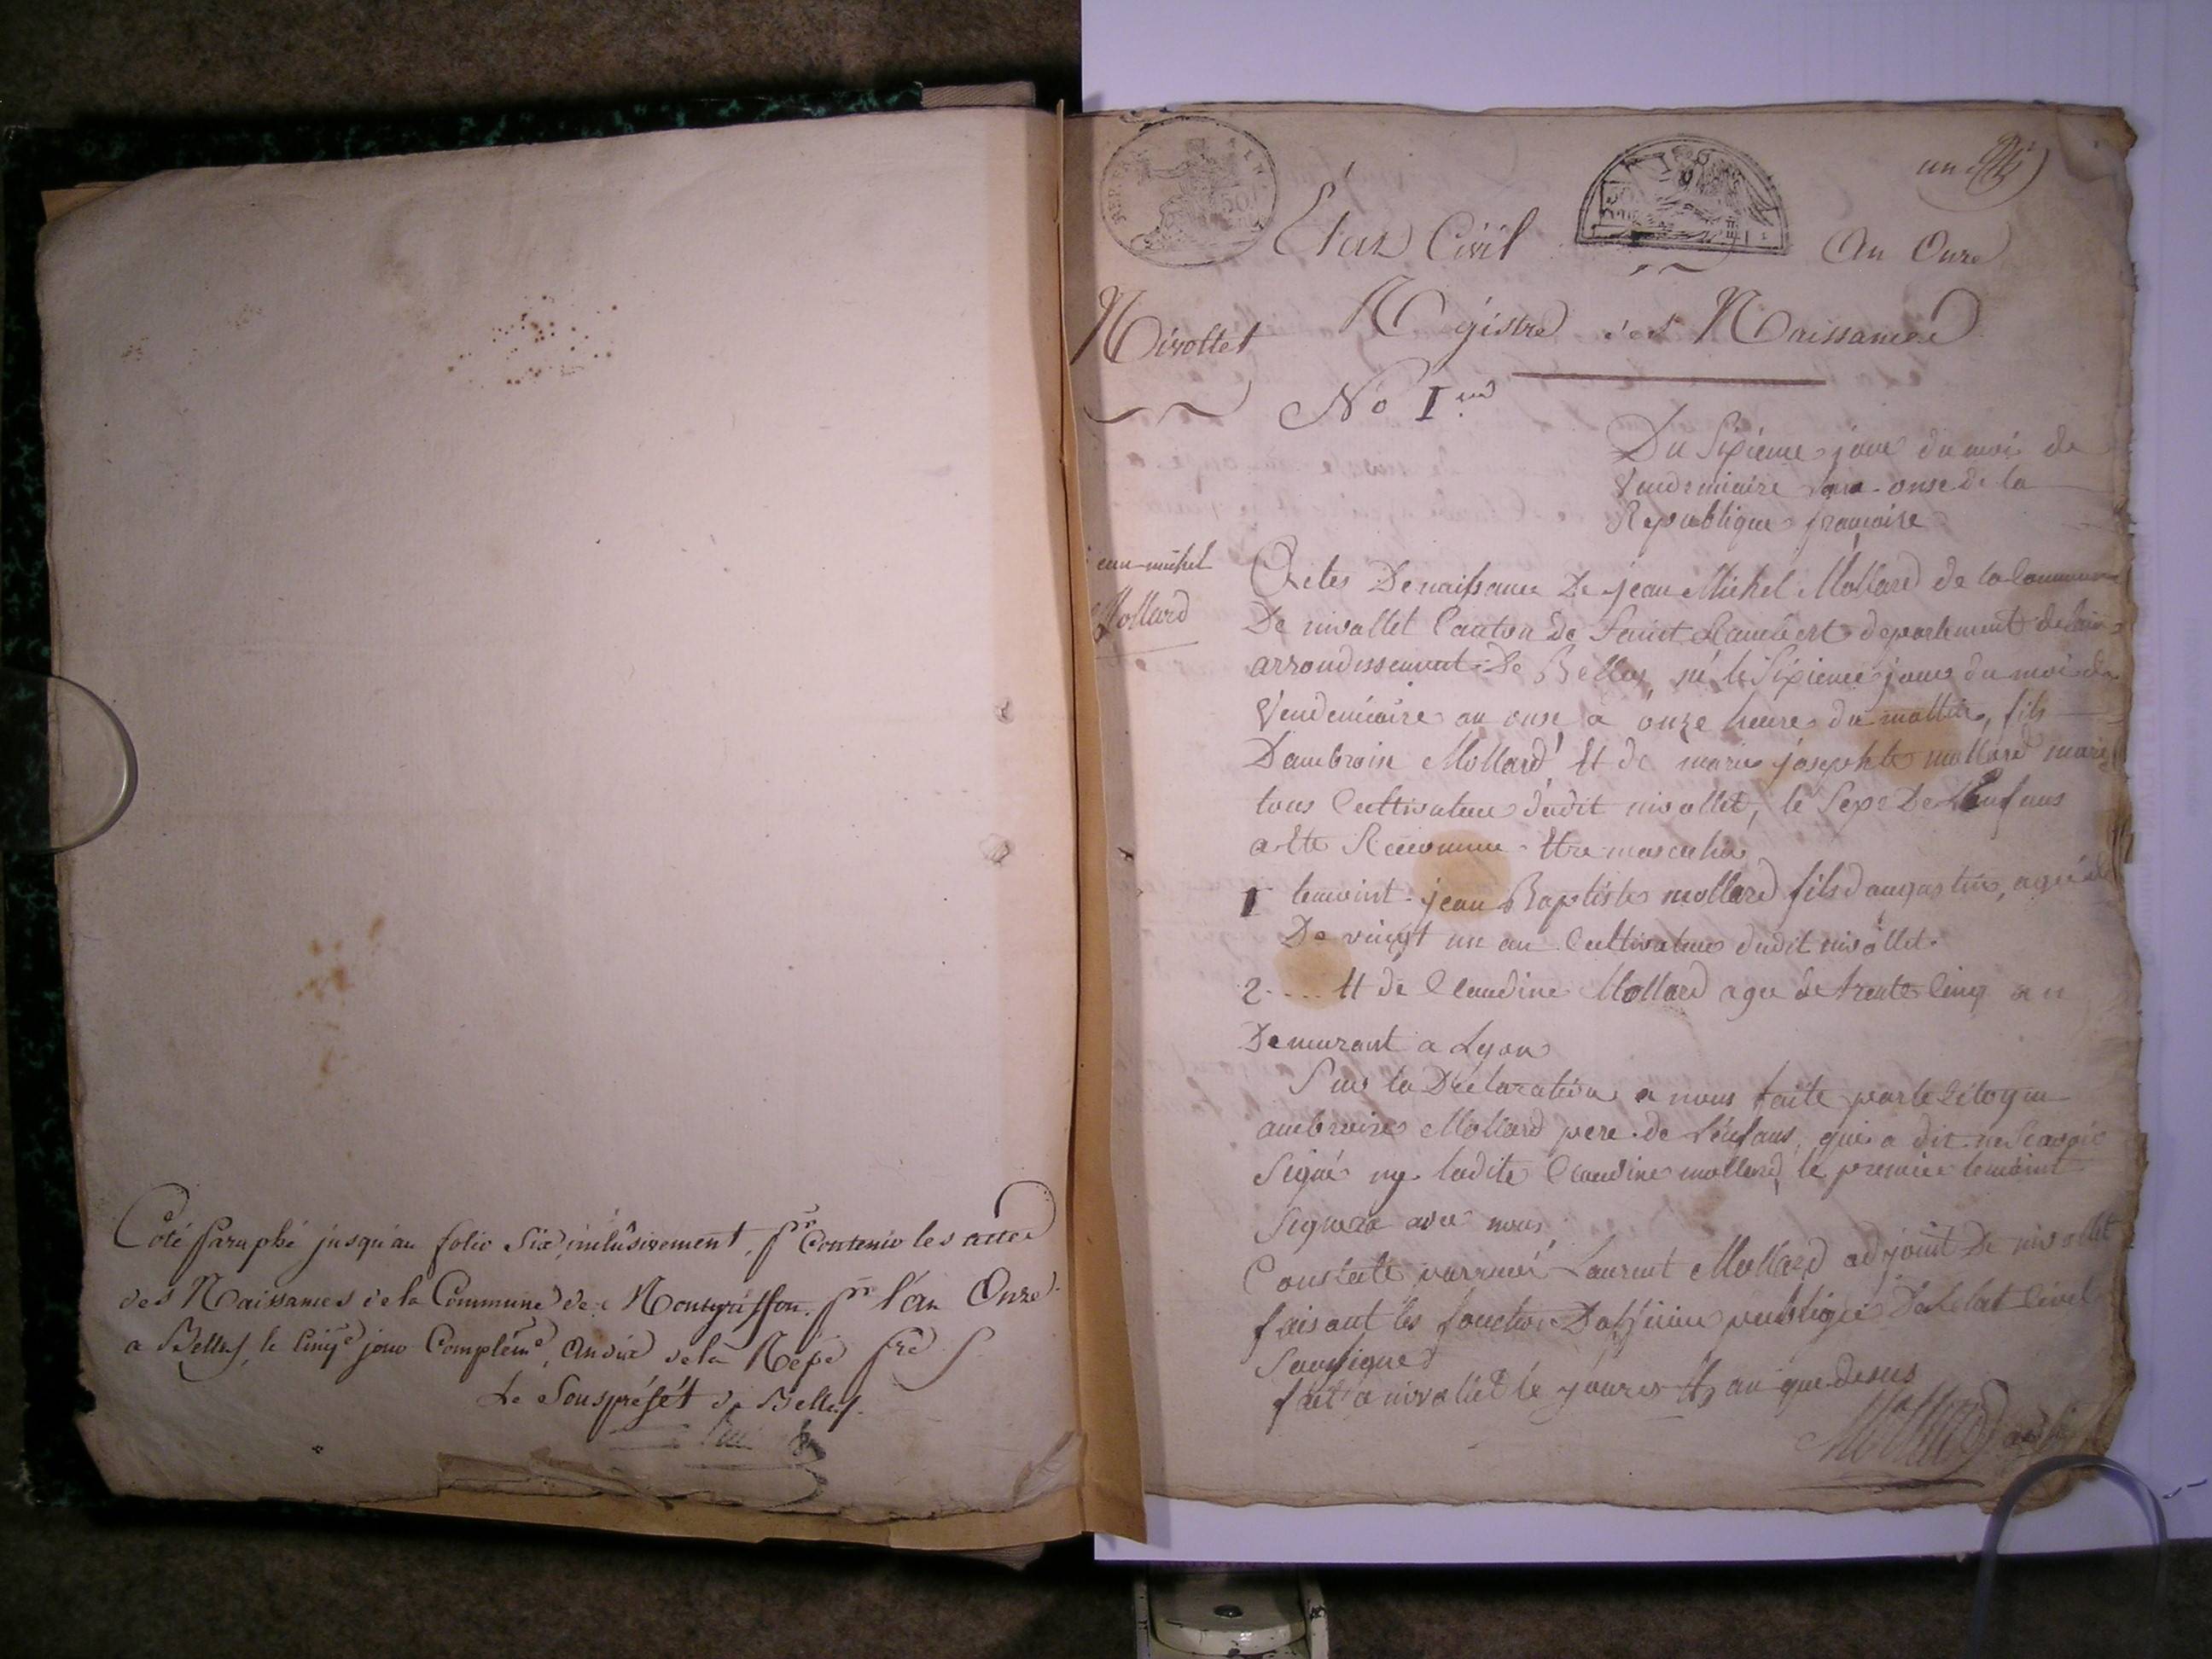 Coté paraphé jusqu'au folio Six, inclûsivement, pr Contenir les actes
des Naissances de la Commune de Montgriffon. pr l'an Onze.
a Belley, le Cinqe jour Complémre, an dix de la Répe fse
Le Souspréfét de Belley.
un
Etat Civil
An Onze
Nivollet Régistre des Naissances
No Ier
Du Sixieme jour du mois de
Vendemiaire onse de la
Republique françaire
ean michel
Mollard
Actes De naissance De jean Michel Mollard de la Commune
De nivollet Canton de Saint Rambert departement de lain
arrondissement De Belley, né le Sixieme jour du mois de
Vendemiaire an onse a onze heure du mattin, fils
Dambroise Mollard Et de marie josephte mollard marié
tous Cultivateur dudit nivollet, le Sexe De Lenfans
a Ete Reconnue Etre masculin
1 temoint jean Baptiste mollard fils daugustin, agé de
De vingt un an Cultivateur dudit nivollet.
2.... Et de Claudine Mollard agée de trente Cinq an
Demurant a Lyon
Sur la Déclaration a nous faite par le Citoyen
ambroise Mollard pere de Lenfans, qui a dit ne Scavoir
Signé ny ladite Claudine mollard, le premier temoint
Signera avec nous,
Constaté par moi Laurent Mollard adjoint De nivollet
faisant les fonction Dofficier publique De Letat Civil
Sousigned
fait a nivollet le jour Et an que desus
Mollard adjt